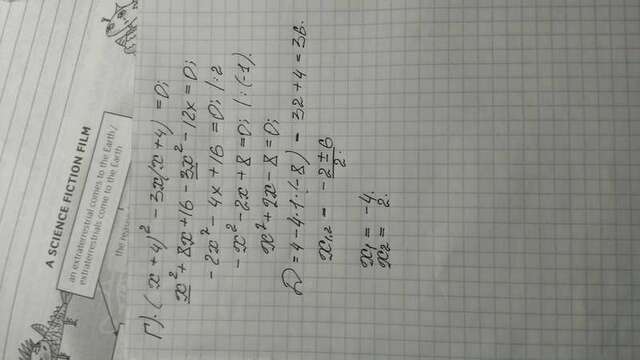 A SCIENCE FICTION FILM
an extraterrestrial comes to the Earth /
extraterrestrials come to the Earth
the reason
Г). (x+4)² - 3x(x+4) = 0;
x² + 8x + 16 - 3x² - 12x = 0;
-2x² - 4x + 16 = 0; |:2
-x² - 2x + 8 = 0; |:(-1).
x² + 2x - 8 = 0;
D = 4 - 4·1·(-8) = 32 + 4 = 36.
x₁,₂ = -2±6/2.
x₁ = -4.
x₂ = 2.